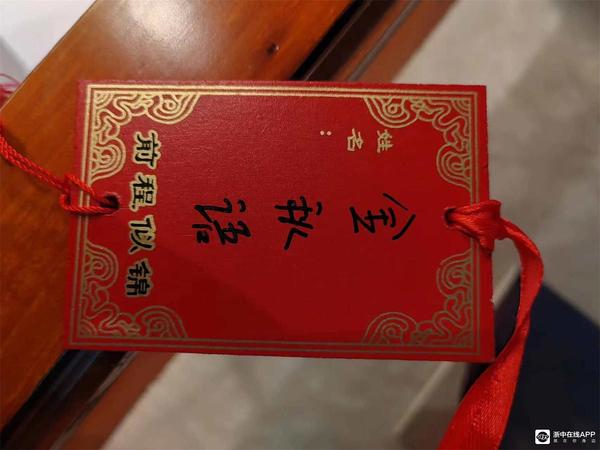 姓名：
金秋语
前程似锦
浙中在线APP